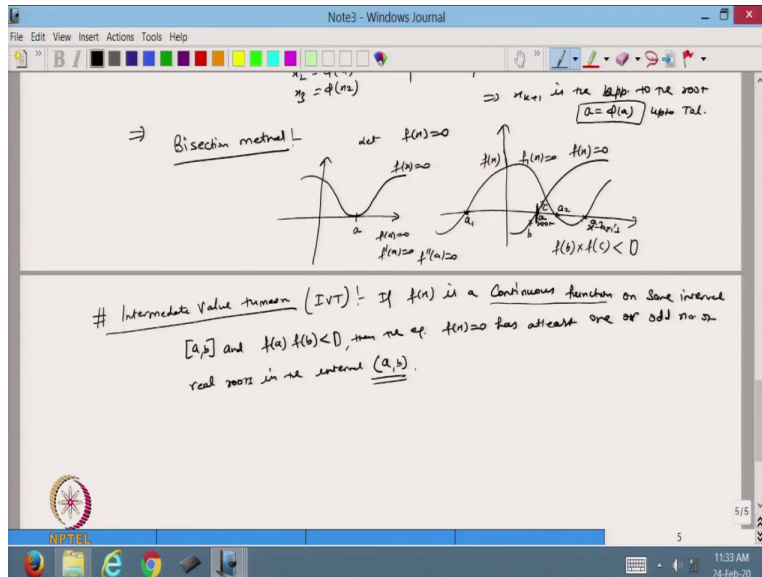 Note3 - Windows Journal
File Edit View Insert Actions Tools Help
x3 = φ(x2)
⇒ xk+1 is the app. to the root
a = φ(a) upto Tol.
⇒ Bisection method!- Let f(x)=0
f(x)=0
a
f(a)=0
f'(a)=0 f''(a)=0
f(x) f1(x)=0 f(x)=0
a1 b a root c a2 a3 x-axis
f(b)×f(c) < 0
# Intermediate Value tumeon (IVT)!- If f(x) is a Continuous function on some interval
[a,b] and f(a) f(b)<0, then the eq. f(x)=0 has atleast one or odd no of
real roots in the interval (a,b).
NPTEL
5/5
5
11:33 AM
24-Feb-20